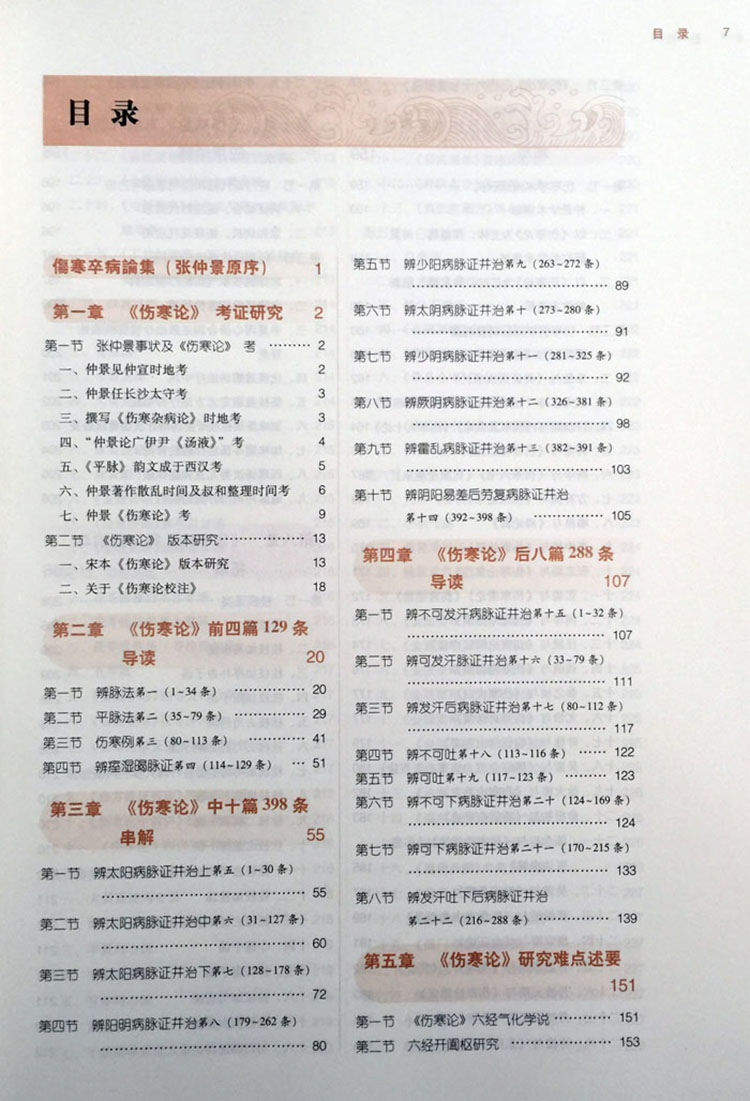 目 录 7
目 录
傷寒卒病論集（张仲景原序） 1
第一章 《伤寒论》 考证研究 2
第一节 张仲景事状及《伤寒论》 考 ……… 2
一、仲景见仲宣时地考 2
二、仲景任长沙太守考 3
三、撰写《伤寒杂病论》时地考 3
四、“仲景论广伊尹《汤液》”考 4
五、《平脉》韵文成于西汉考 5
六、仲景著作散乱时间及叔和整理时间考
七、仲景《伤寒论》考 9
第二节 《伤寒论》 版本研究 ……………… 13
一、宋本《伤寒论》版本研究 13
二、关于《伤寒论校注》 18
第二章 《伤寒论》前四篇129条
导读 20
第一节 辨脉法第一（1~34条） …………… 20
第二节 平脉法第二（35~79条） ………… 29
第三节 伤寒例第三（80~113条） ………… 41
第四节 辨痓湿暍脉证第四（114~129条） … 51
第三章 《伤寒论》中十篇398条
串解 55
第一节 辨太阳病脉证并治上第五（1~30条）
………………………………… 55
第二节 辨太阳病脉证并治中第六（31~127条）
………………………………… 60
第三节 辨太阳病脉证并治下第七（128~178条）
………………………………… 72
第四节 辨阳明病脉证并治第八（179~262条）
………………………………… 80
第五节 辨少阳病脉证并治第九（263~272条）
………………………………… 89
第六节 辨太阴病脉证并治第十（273~280条）
………………………………… 91
第七节 辨少阴病脉证并治第十一（281~325条）
………………………………… 92
第八节 辨厥阴病脉证并治第十二（326~381条）
………………………………… 98
第九节 辨霍乱病脉证并治第十三（382~391条）
………………………………… 103
第十节 辨阴阳易差后劳复病脉证并治
第十四（392~398条） ……………… 105
第四章 《伤寒论》后八篇288条
导读 107
第一节 辨不可发汗病脉证并治第十五（1~32条）
………………………………… 107
第二节 辨可发汗脉证并治第十六（33~79条）
………………………………… 111
第三节 辨发汗后病脉证并治第十七（80~112条）
………………………………… 117
第四节 辨不可吐第十八（113~116条） …… 122
第五节 辨可吐第十九（117~123条） ……… 123
第六节 辨不可下病脉证并治第二十（124~169条）
………………………………… 124
第七节 辨可下病脉证并治第二十一（170~215条）
………………………………… 133
第八节 辨发汗吐下后病脉证并治
第二十二（216~288条） …………… 139
第五章 《伤寒论》研究难点述要
151
第一节 《伤寒论》六经气化学说 ………… 151
第二节 六经开阖枢研究 …………………… 153